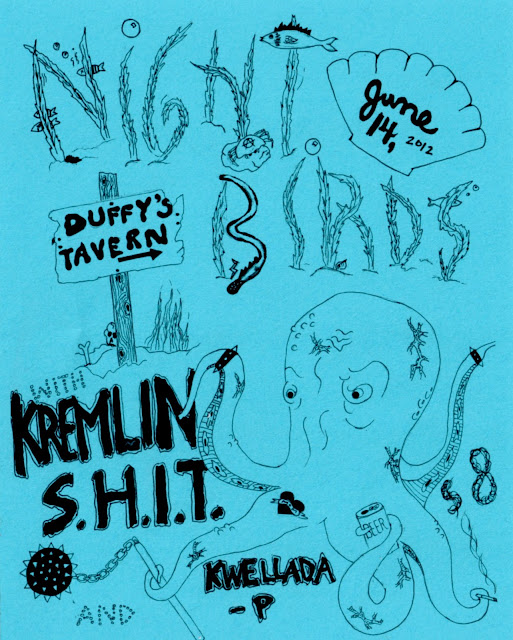 NIGHT
June
14, 2012
BIRDS
DUFFY'S
TAVERN
WITH
KREMLIN
S.H.I.T.
BEER
$8
AND
KWELLADA
-P